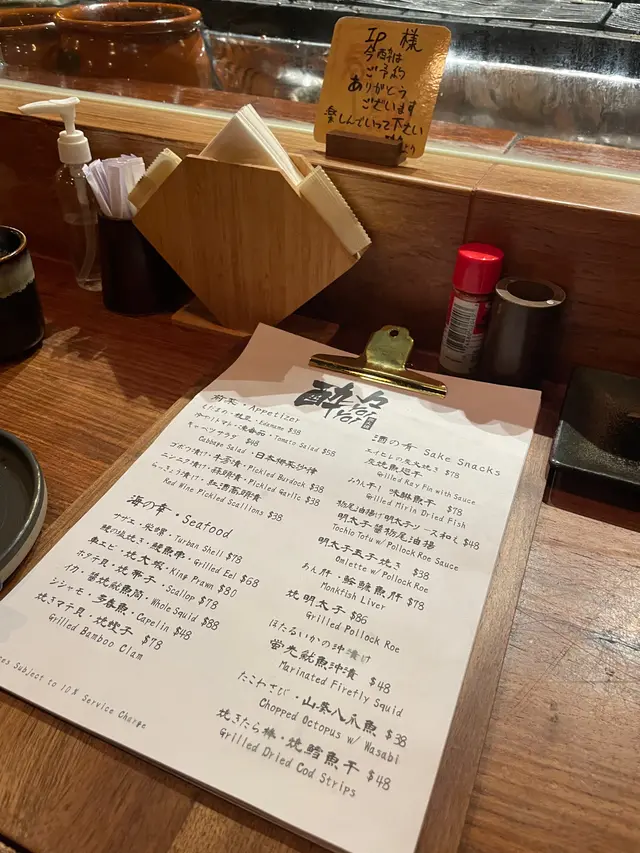 IP 様
今酔は
ご予約
ありがとう
ございます
楽しんでいって下さい
より
酔今
YOI YOI
前菜・Appetizer
えだまめ・枝豆・Edename $38
冷やしトマト・凍番茄・Tomato Salad $58
キャベツサラダ $48
Cabbage Salad・日本椰菜沙律
ゴボウ漬け・牛蒡漬・Pickled Burdock $38
ニンニク漬け・蒜頭漬・Pickled Garlic $38
らっきょう漬け・紅酒蕎頭漬
Red Wine Pickled Scallions $38
海の幸・Seafood
サザエ・栄螺・Turban Shell $78
鰻の塩焼き・鰻魚串・Grilled Eel $68
車エビ・焼大蝦・King Prawn $80
ホタテ貝・焼帯子・Scallop $78
イカ・醤焼魷魚筒・Whole Squid $88
シシャモ・多春魚・Capelin $48
焼きマテ貝・焼蟶子 $78
Grilled Bamboo Clam
Subject to 10% Service Charge
酒の肴 Sake Snacks
エイヒレの炙火焼き $78
炭焼魔鬼翅
Grilled Ray Fin with Sauce
みりん干し 味醂魚干 $78
Grilled Mirin Dried Fish
栃尾油揚げ明太子ソース和え $48
明太子醤栃尾油揚
Tochio Tofu w/ Pollock Roe Sauce
明太子玉子焼き $38
Omlette w/ Pollock Roe
あん肝・鮟鱇魚肝 $78
Monkfish Liver
焼明太子 $86
Grilled Pollock Roe
ほたるいかの沖漬け
螢光魷魚沖漬 $48
Marinated Firefly Squid
たこわさび・山葵八爪魚 $38
Chopped Octopus w/ Wasabi
焼きたら棒・焼鱈魚干 $48
Grilled Dried Cod Strips